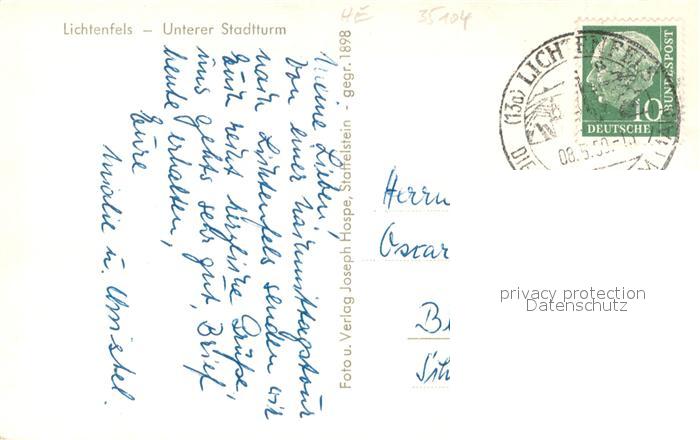 Lichtenfels – Unterer Stadtturm
HE 35104
Meine Lieben,
von einer Nachmittagstour
nach Lichtenfels senden wir
Euch recht herzliche Grüße,
uns gehts sehr gut, Brief
heute erhalten,
Eure
u. Christel.
Foto u. Verlag Joseph Hospe, Staffelstein - gegr. 1898
(13a) LICHTENFELS
08.5.59
10
DEUTSCHE
BUNDESPOST
Herrn
Oscar
privacy protection
Datenschutz